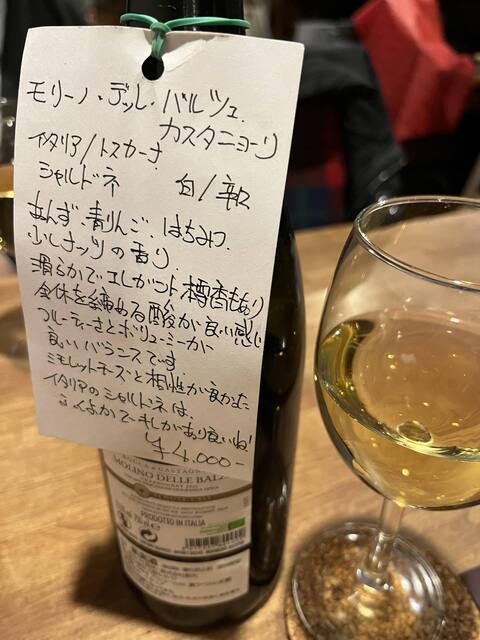 モリーノ・デッレ・バルツェ
カスタニョーリ
イタリア/トスカーナ
シャルドネ 白/辛口
あんず・青りんご・はちみつ
少しナッツの香り
滑らかでエレガント 樽香もあり
全体を纏める酸が良い感じ
フルーティーさとボリューミーが
良いバランスです
ミモレットチーズと相性が良かった
イタリアのシャルドネは
ふくよかで しがあり良いね!
¥4,000-
MOLINO DELLE BALZ
PRODOTTO IN ITALIA
750 ml e